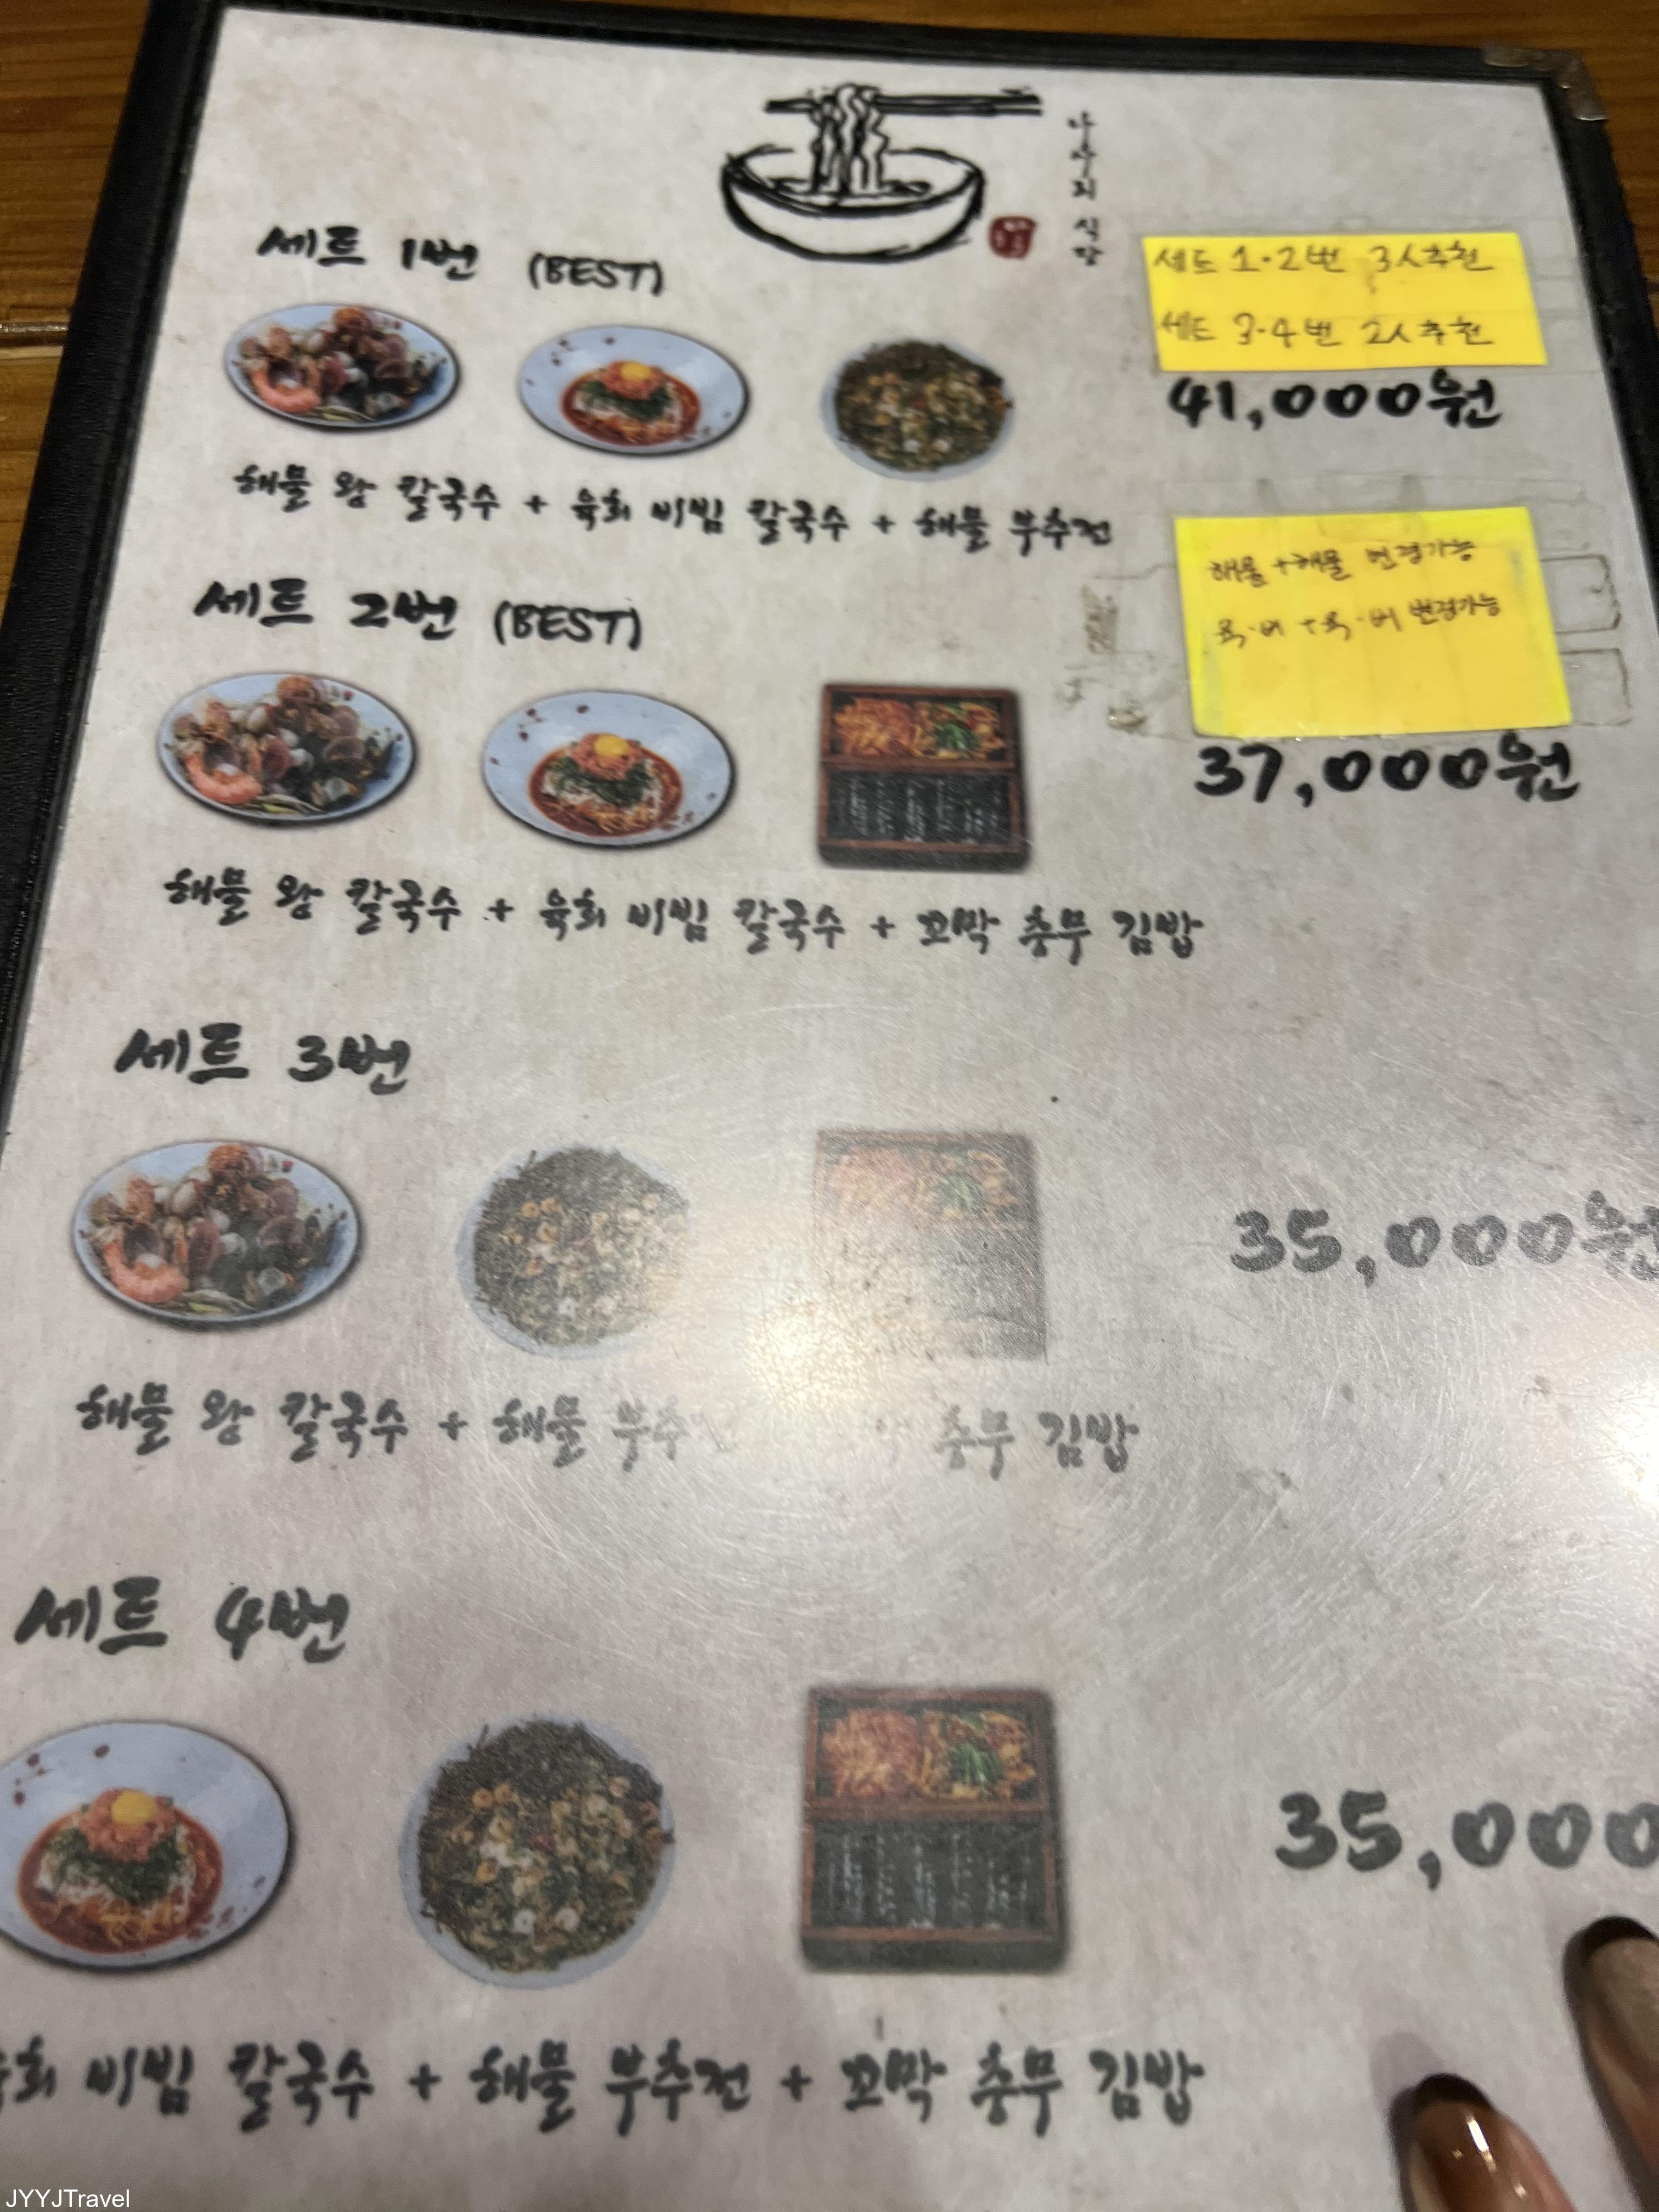 나사리 식당
세트 1번 (BEST)
세트 1·2번 3人추천
세트 3·4번 2人추천
41,000원
해물 왕 칼국수 + 육회 비빔 칼국수 + 해물 부추전
해물+해물 변경가능
육·비+육·비 변경가능
세트 2번 (BEST)
37,000원
해물 왕 칼국수 + 육회 비빔 칼국수 + 꼬막 충무 김밥
세트 3번
35,000원
해물 왕 칼국수 + 해물 부추 충무 김밥
세트 4번
35,000
비빔 칼국수 + 해물 부추전 + 꼬막 충무 김밥
JYYJTravel